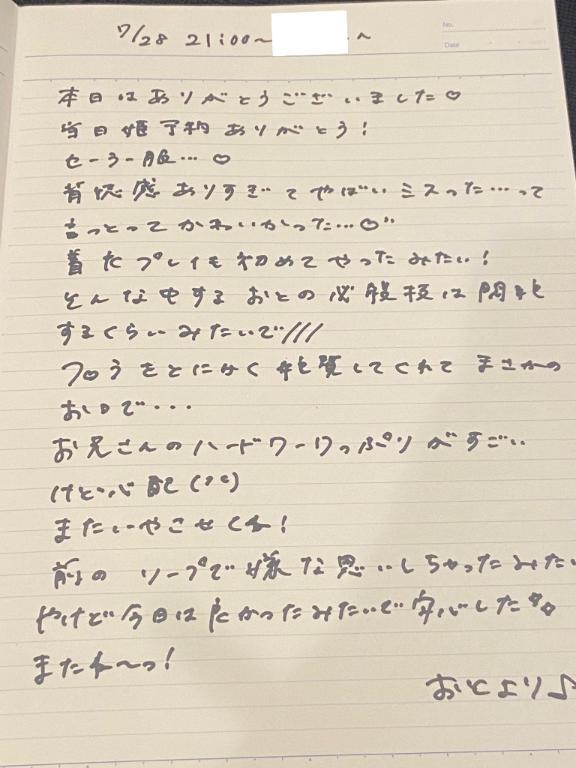 7/28 21:00〜 へ
No.
Date
本日はありがとうございました♡
当日姫予約ありがとう!
セーラー服…♡
背徳感ありすぎてやばいミスった…って
言っとってかわいかった…♡"
着たプレイも初めてやったみたい!
そんな中する おとの必殺技は悶絶
するくらいみたいで///
フロうをとにかく 絶賛してくれて まさかの
お口で・・・
お兄さんのハードワークっぷりがすごい
けど心配(°°)
またいやこせてね!
前の ソープで嫌な思いしちゃったみたい
やけど今日は良かったみたいで安心した
またね〜っ!
おとより♪